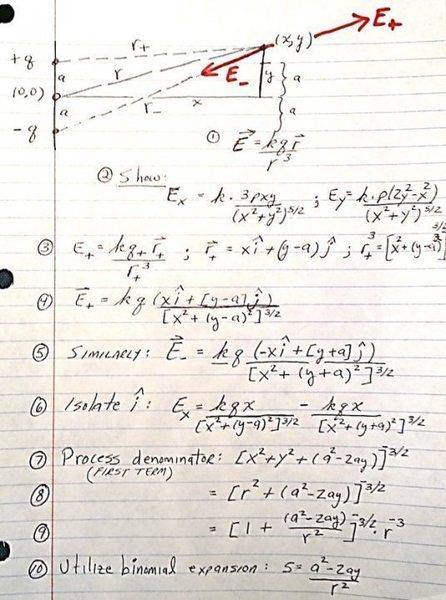 E₊
(x,y)
+q
r₊
a
r
E₋
y
a
(0,0)
a
r₋
x
a
-q
① E⃗ = kqr⃗/r³
② Show:
Eₓ = k·3pxy/(x²+y²)^5/2 ; Ey = k·p(2y²-x²)/(x²+y²)^5/2
③ E₊ = kq₊r⃗₊/r₊³ ; r⃗₊ = xî+(y-a)ĵ ; r₊³ = [x²+(y-a)²]^3/2
④ E⃗₊ = kq(xî+[y-a]ĵ)/[x²+(y-a)²]^3/2
⑤ SIMILARLY: E⃗₋ = kq(-xî+[y+a]ĵ)/[x²+(y+a)²]^3/2
⑥ Isolate î: Eₓ = kqx/[x²+(y-a)²]^3/2 - kqx/[x²+(y+a)²]^3/2
⑦ Process denominator: [x²+y²+(a²-2ay)]^-3/2
(FIRST TERM)
⑧ = [r²+(a²-2ay)]^-3/2
⑨ = [1+(a²-2ay)/r²]^-3/2·r^-3
⑩ Utilize binomial expansion: S = a²-2ay/r²